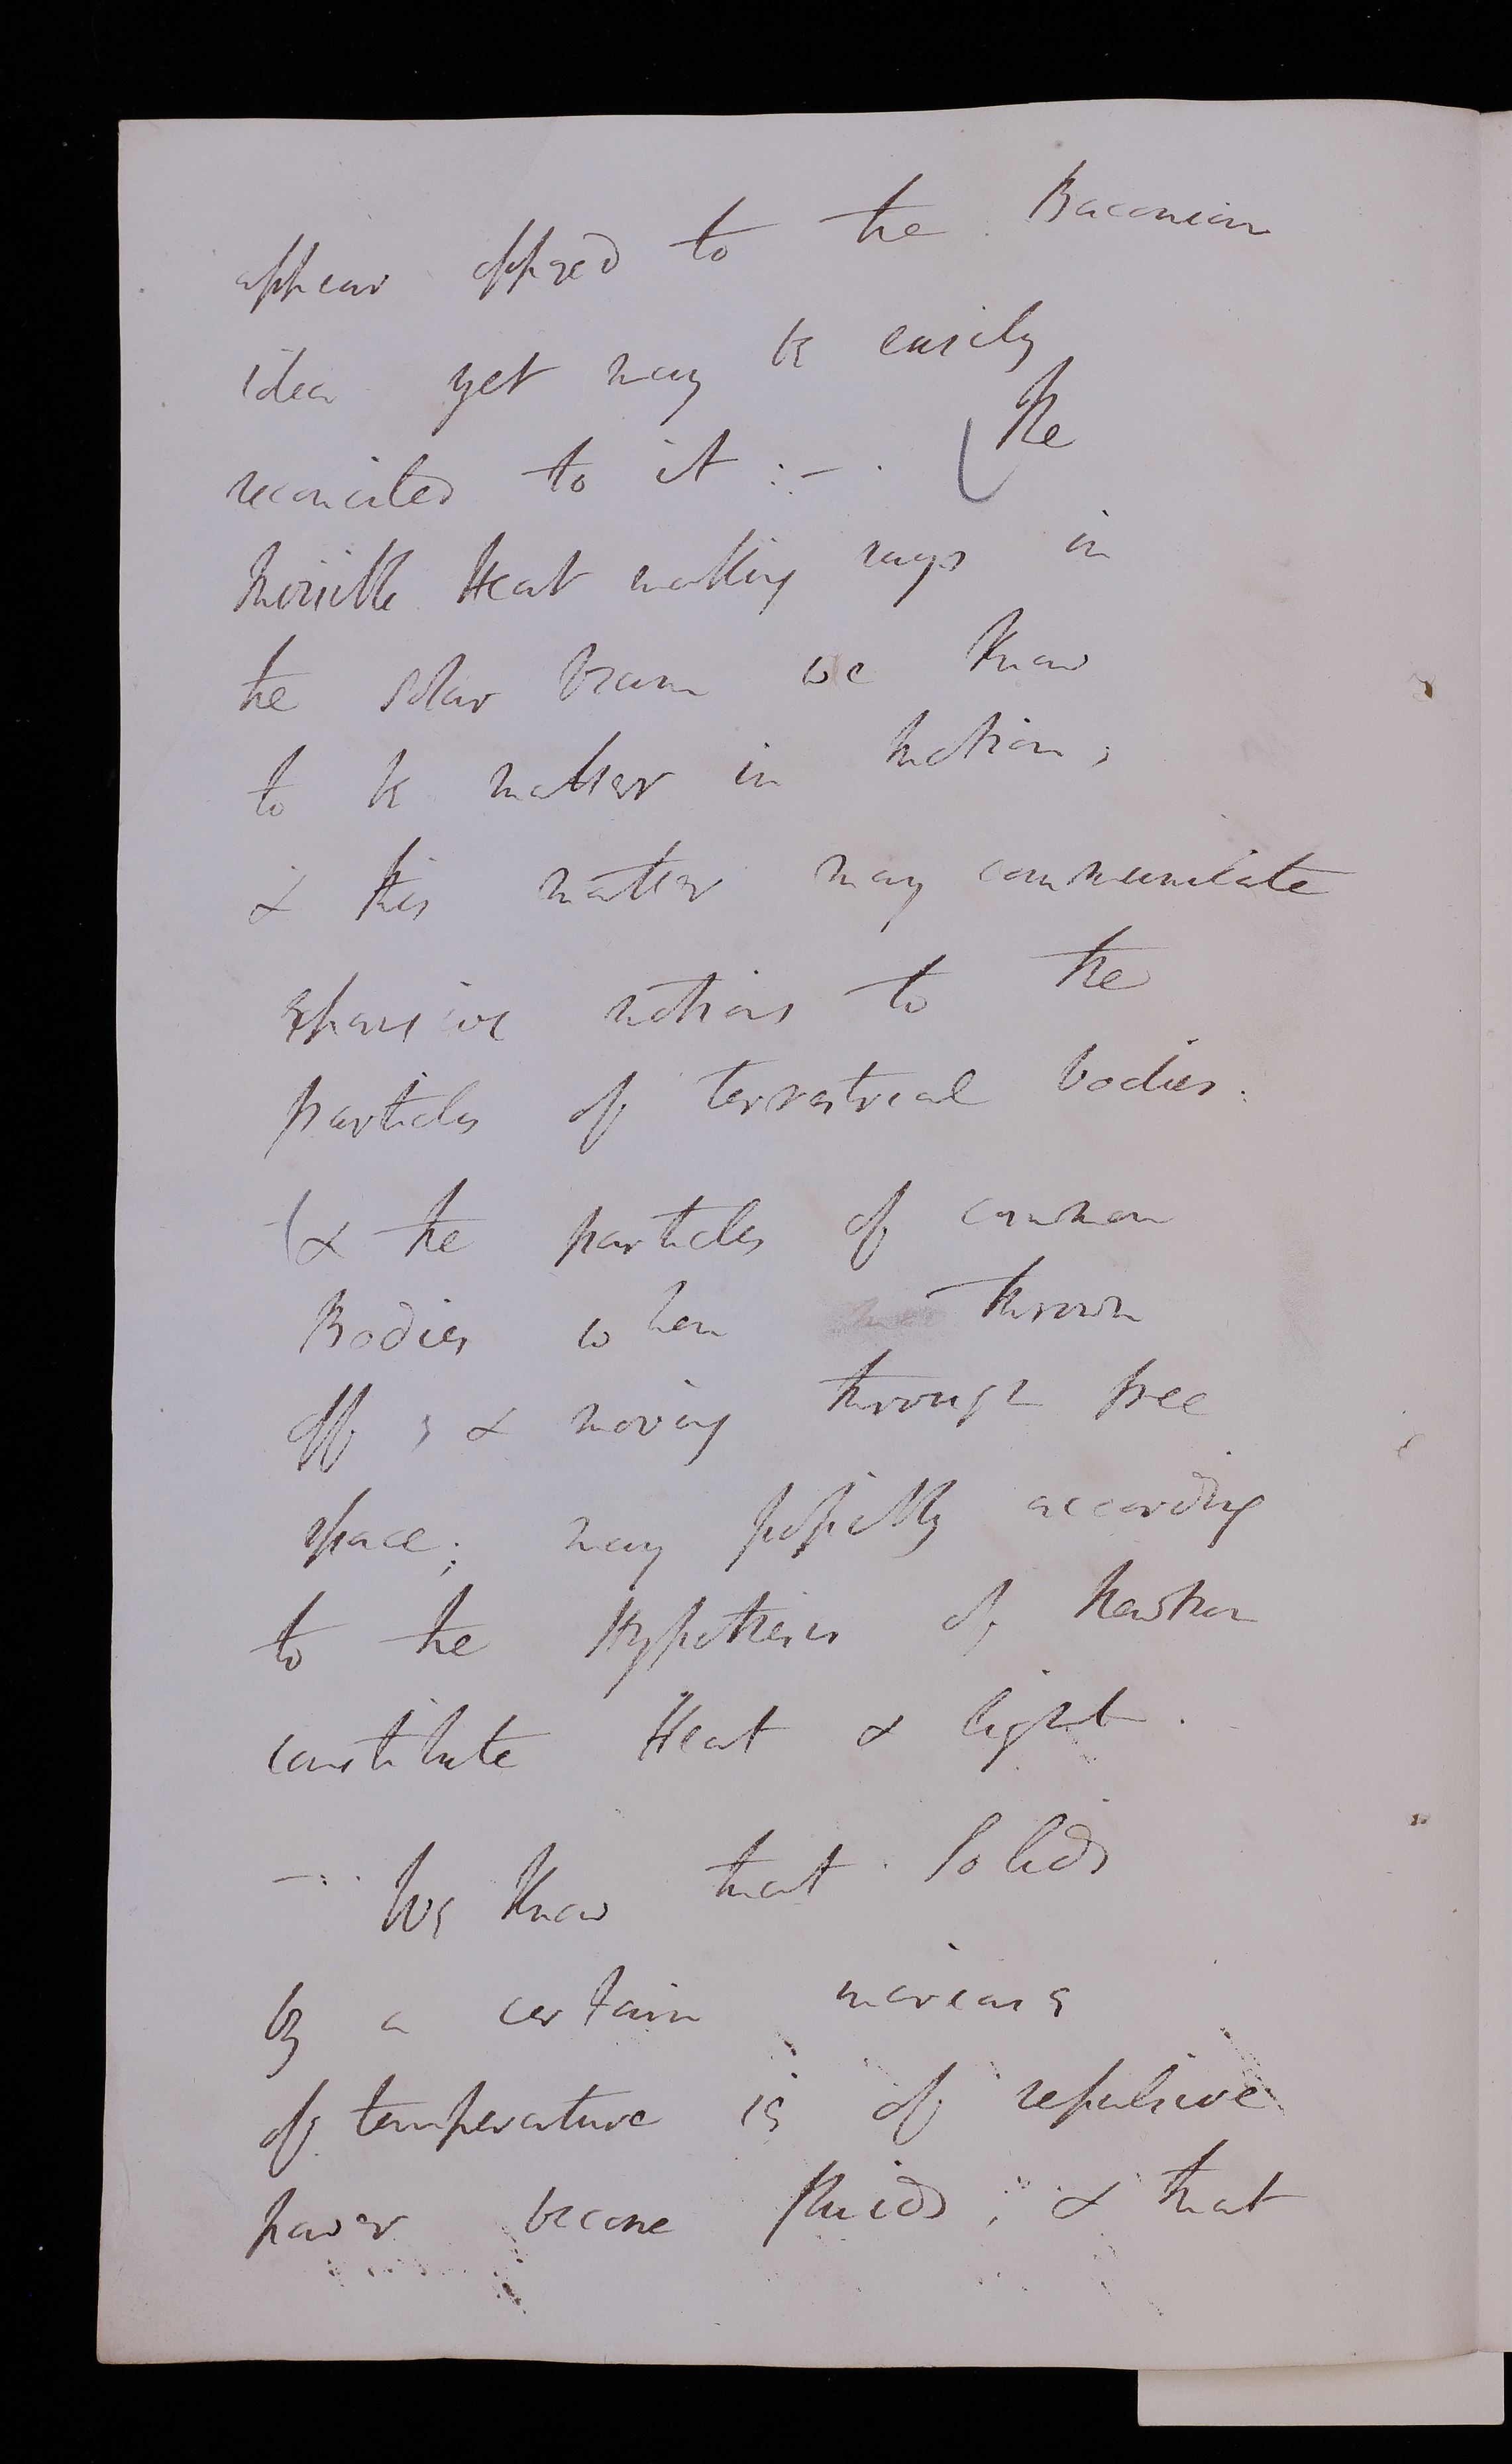 appear opposed to the Baconian
idea yet may be easily
reconciled to it :- . (The
Invisible Heat making rays in
the solar beam we know
to be matter in motion,
& this matter may communicate
expansive motions to the
particles of terrestrial bodies.
(& the particles of common
Bodies when thrown
off, & moving through free
space; may possibly according
to the Hypothesis of Newton
constitute Heat & light.
— We know that Solids
by a certain increase
of temperature ie of repulsive
power become fluids; & that